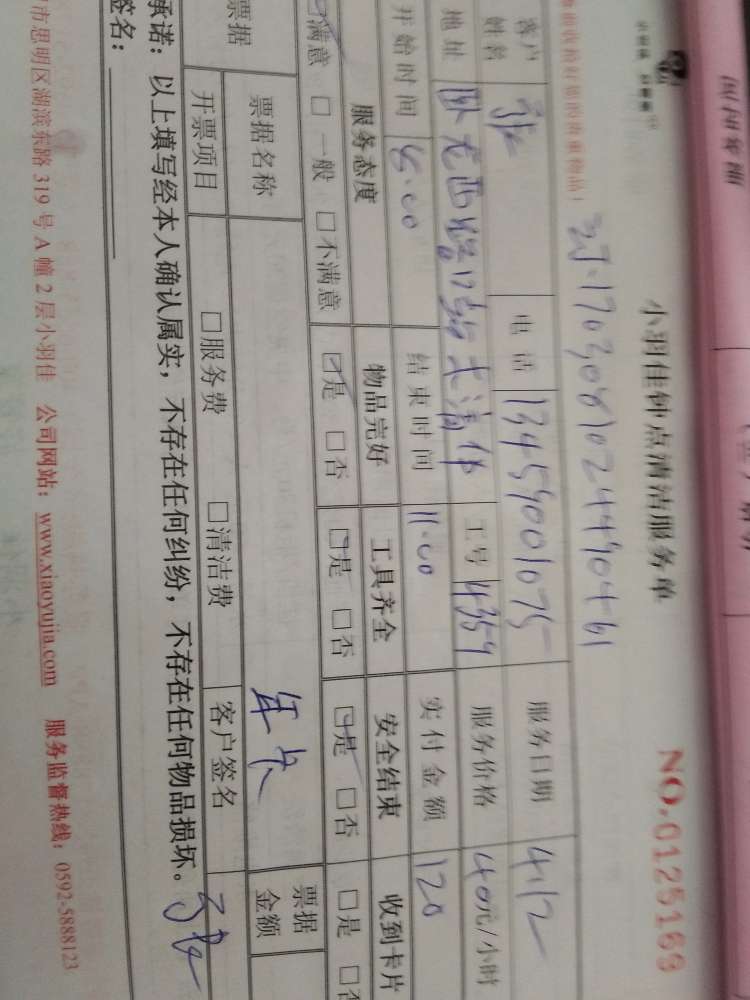 小羽佳钟点清洁服务单
NO.0125169
客户姓名 电话 13459001075 服务日期 4.12
地址 工号 4359 服务价格 40元/小时
开始时间 结束时间 11.00 实付金额 120
服务态度 物品完好 工具齐全 安全结束 收到卡片
满意 □一般 □不满意 ☑是 □否 □是 □否 □是 □否 □是 □否
票据 票据名称 年卡 票据金额
开票项目 □服务费 □清洁费 客户签名
承诺：以上填写经本人确认属实，不存在任何纠纷，不存在任何物品损坏。
签名：
市思明区湖滨东路 319 号 A 幢 2 层小羽佳 公司网站：www.xiaoyujia.com 服务监督热线：0592-5888123